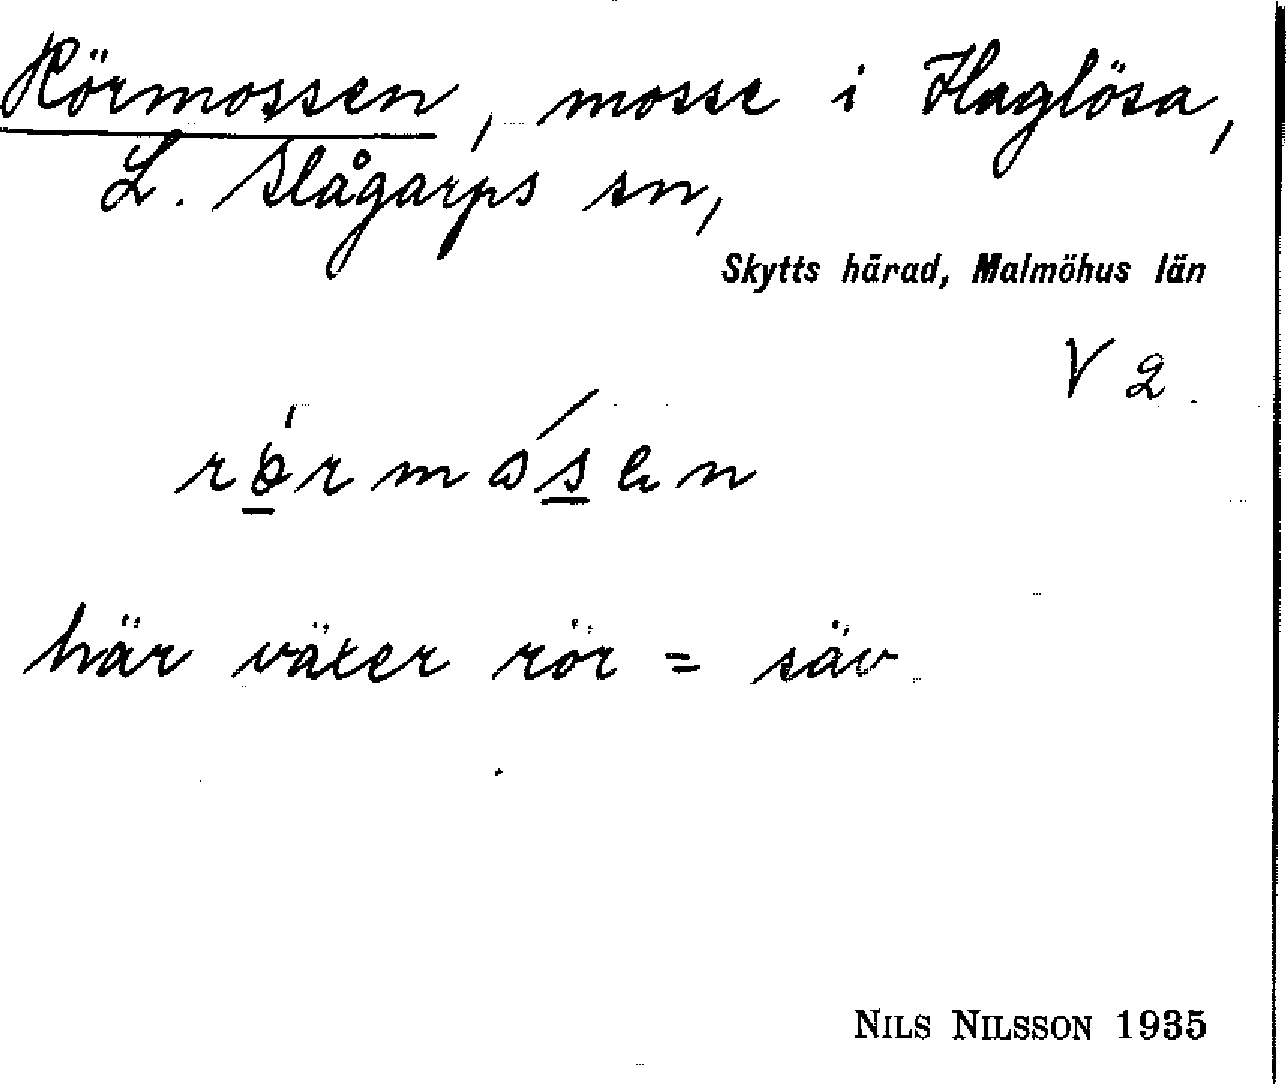 Rörmossen, mosse i Haglösa,
L. Slågarps sn,
Skytts härad, Malmöhus län
V 2.
här växer rör = säv.
NILS NILSSON 1935